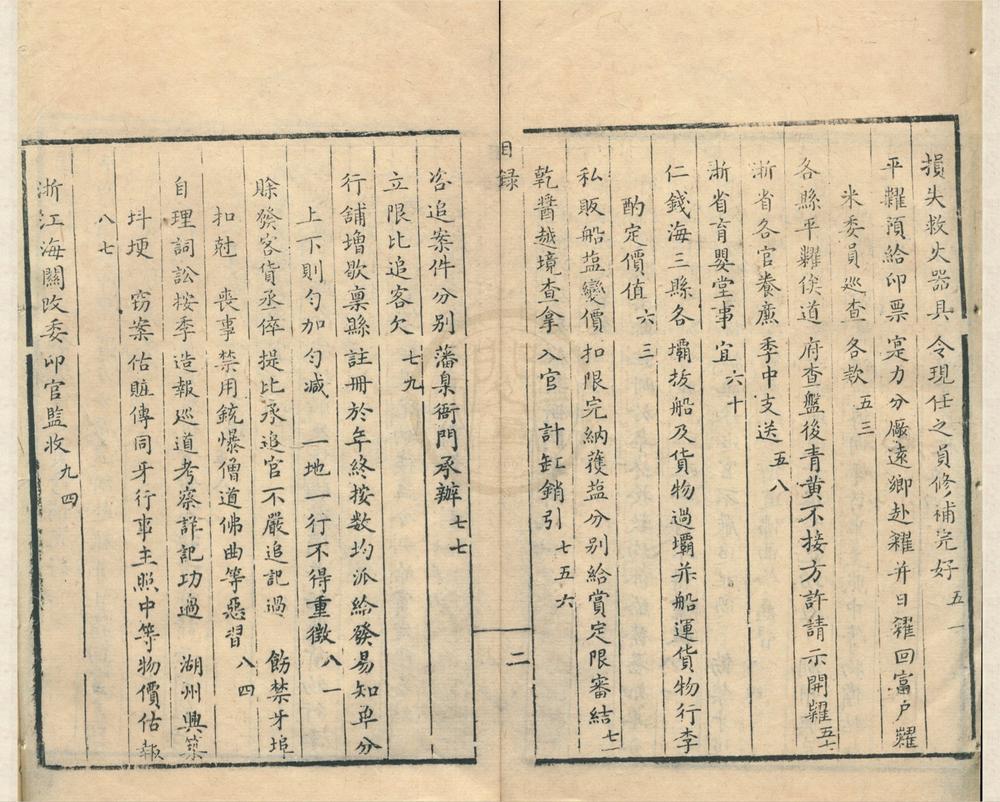 損失救火器具　令現任之員修補完好　五一
平糶預給印票　寔力分厰遠鄉赴糴并日糴回富户糶
米委員巡查　各欵　五三
各縣平糶俟道　府查盤後青黄不接方許請示開糶　五七
浙省各官養㢘　季中支送　五八
浙省育嬰堂事　宜　六十
仁錢海三縣各　壩拔船及貨物過壩并船運貨物行李
酌定價值　六三
私販船塩變價　扣限完納獲塩分别給賞定限審結　七一
乾醬越境查拿　入官　計缸銷引　七五六
目録
二
咨追案件分别　藩臬衙門承辦　七七
立限比追客欠　七九
行舖增歇稟縣　註冊於年終按数均派給發易知单分
上下則勻加　勻减　一地一行不得重徵　八一
賒發客貨丞倅　提比承追官不嚴追記過　飭禁牙埠
扣尅　喪事　禁用銃爆僧道佛曲等惡習　八四
自理詞訟按季　造報巡道考察詳記功過　湖州興築
圩埂　窃案　估賍傳同牙行事主照中等物價估報
八七
浙江海關改委　印官監收　九四